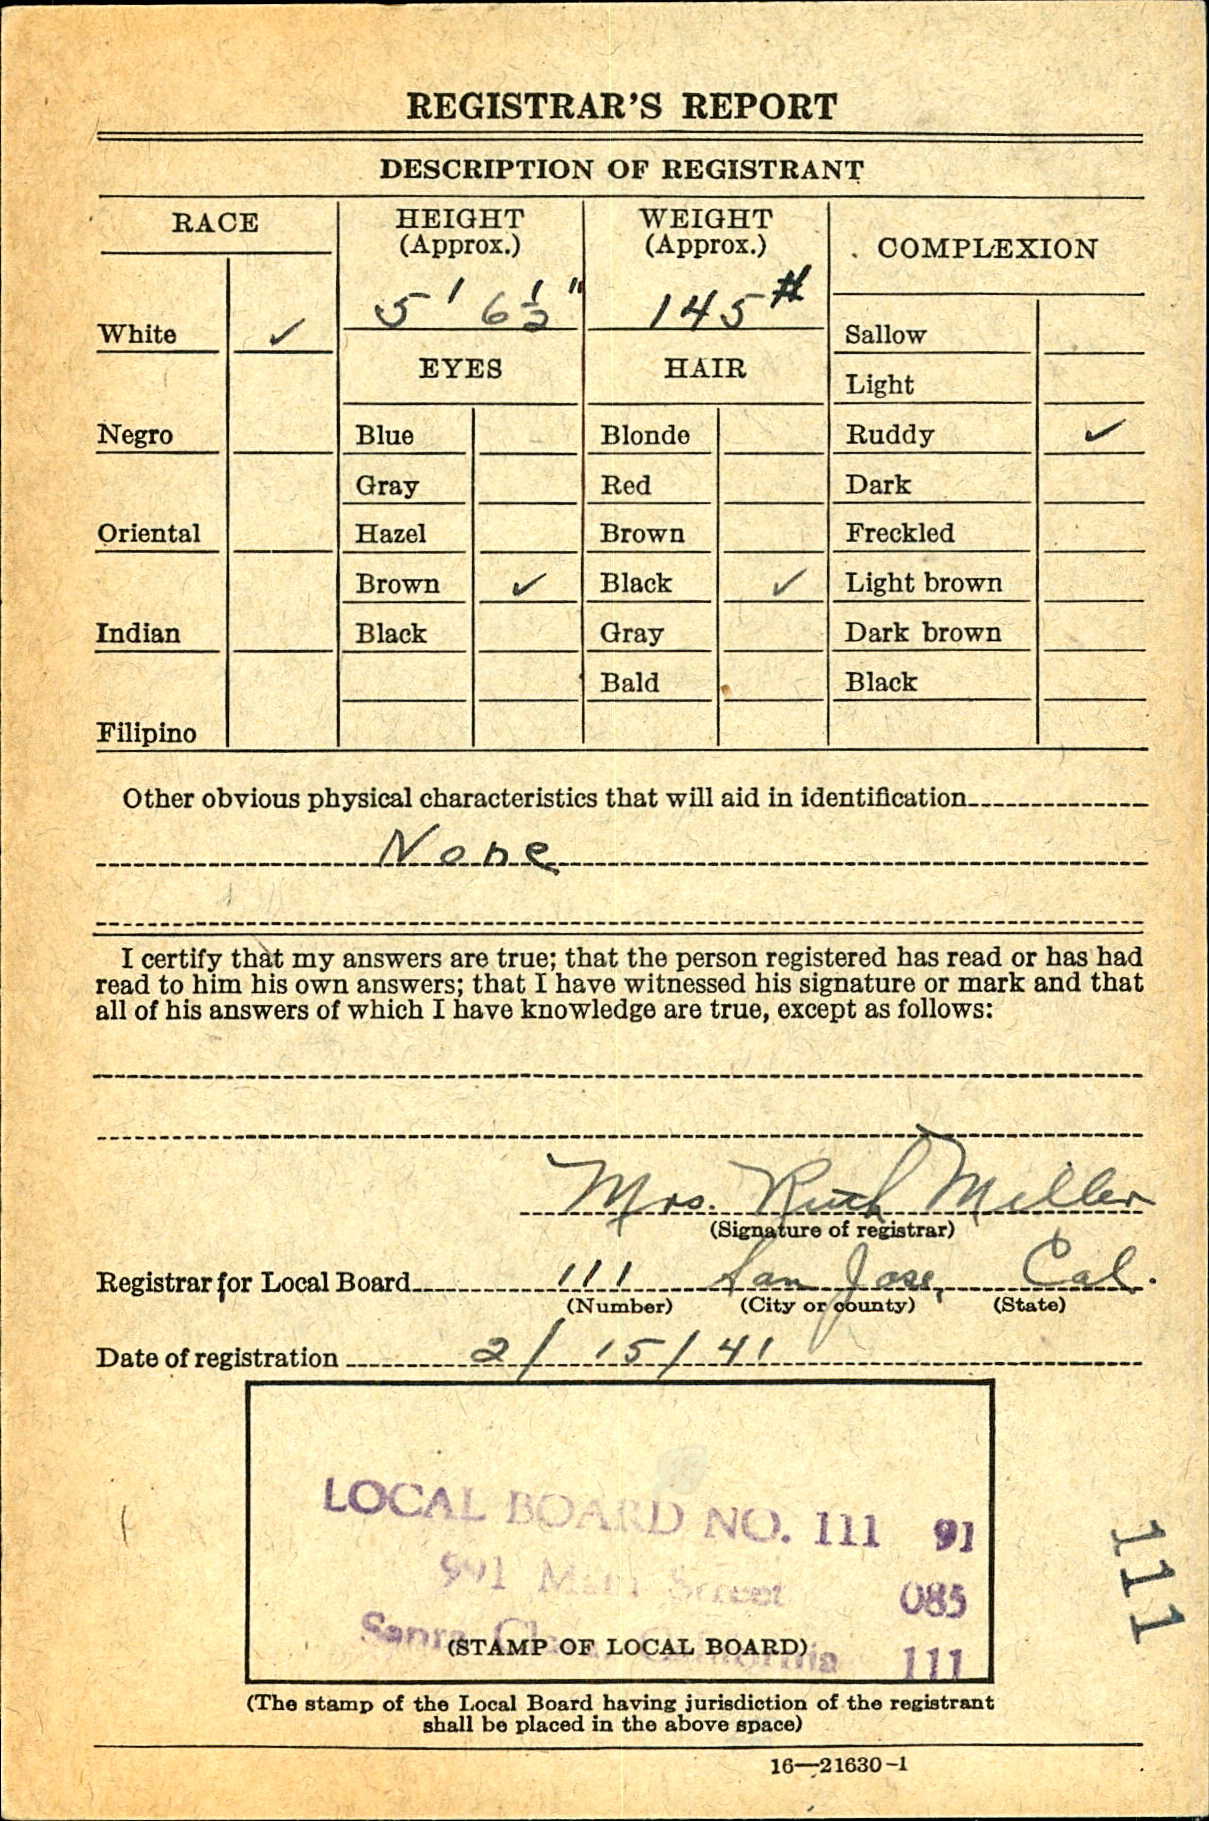 REGISTRAR'S REPORT
DESCRIPTION OF REGISTRANT
RACE
HEIGHT
(Approx.)
WEIGHT
(Approx.)
COMPLEXION
5' 6 1/2"
145 #
White ✓
EYES
HAIR
Sallow
Light
Negro
Blue
Blonde
Ruddy ✓
Gray
Red
Dark
Oriental
Hazel
Brown
Freckled
Brown ✓
Black ✓
Light brown
Indian
Black
Gray
Dark brown
Bald
Black
Filipino
Other obvious physical characteristics that will aid in identification
None
I certify that my answers are true; that the person registered has read or has had
read to him his own answers; that I have witnessed his signature or mark and that
all of his answers of which I have knowledge are true, except as follows:
Mrs. Ruth Miller
(Signature of registrar)
Registrar for Local Board 111 San Jose, Cal.
(Number) (City or county) (State)
Date of registration 2/15/41
LOCAL BOARD NO. 111 91
991 Main Street 085
Santa Clara, California 111
(STAMP OF LOCAL BOARD)
111
(The stamp of the Local Board having jurisdiction of the registrant
shall be placed in the above space)
16—21630-1